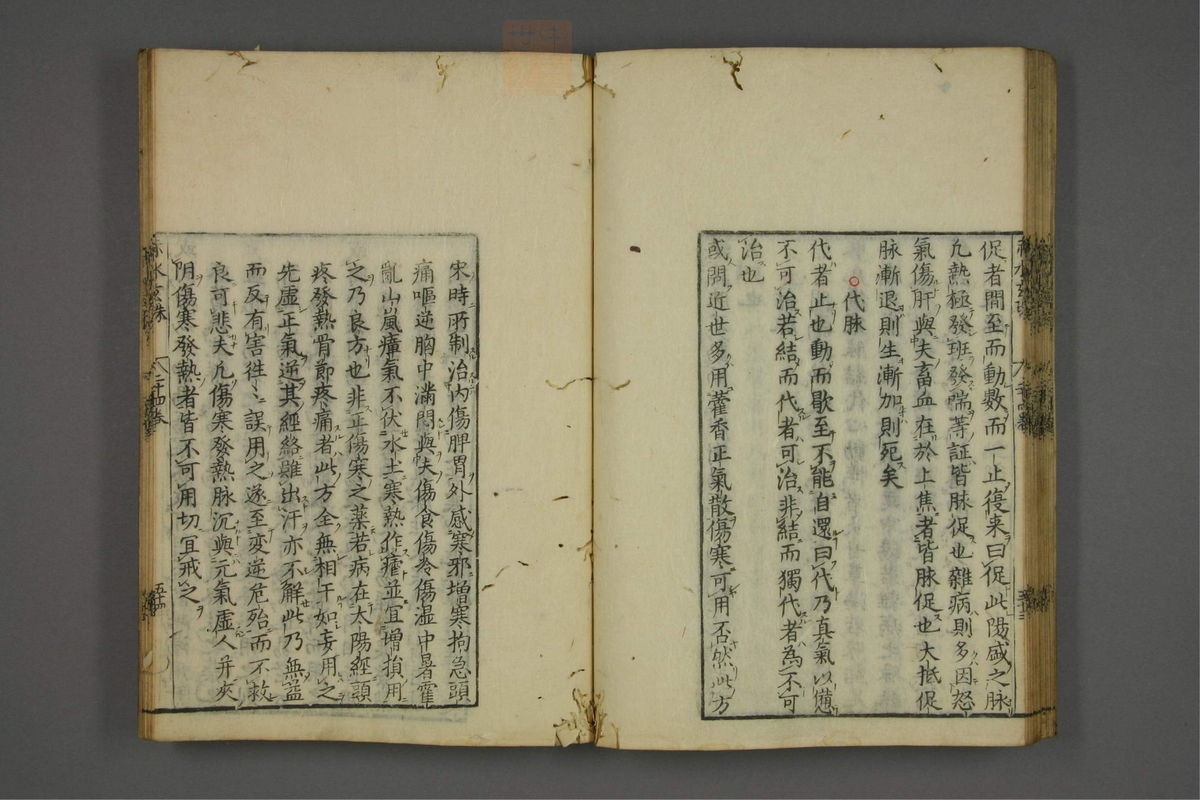 促者間至而動数而一止復来曰促此陽盛之脉
九熱極發班發喘等証皆脉促也雜病則多因怒
氣傷肝與夫畜血在於上焦者皆脉促也大抵促
脉漸退則生漸加則死矣
○代脉
代者止也動而歇至不能自還曰代乃真氣以憊
不可治若結而代者可治非結而獨代者為不可
治也
或問近世多用藿香正氣散傷寒可用否然此方
宋時所制治内傷脾胃外感寒邪増寒拘急頭
痛嘔逆胸中滿悶與夫傷食傷冷傷湿中暑霍
亂山嵐瘴氣不伏水土寒熱作瘧並宜增損用
之乃良方也非正傷寒之藥若病在太陽經頭
疼發熱骨節疼痛者此方全無相干如妄用之
先虛正氣逆其經絡雖出汗亦不解此乃無益
而反有害徃〻誤用之遂至変逆危殆而不救
良可悲夫凡傷寒發熱脉沉與元氣虛人并夾
阴傷寒發熱者皆不可用切宜戒之
赤水玄珠
二十四卷
五十四